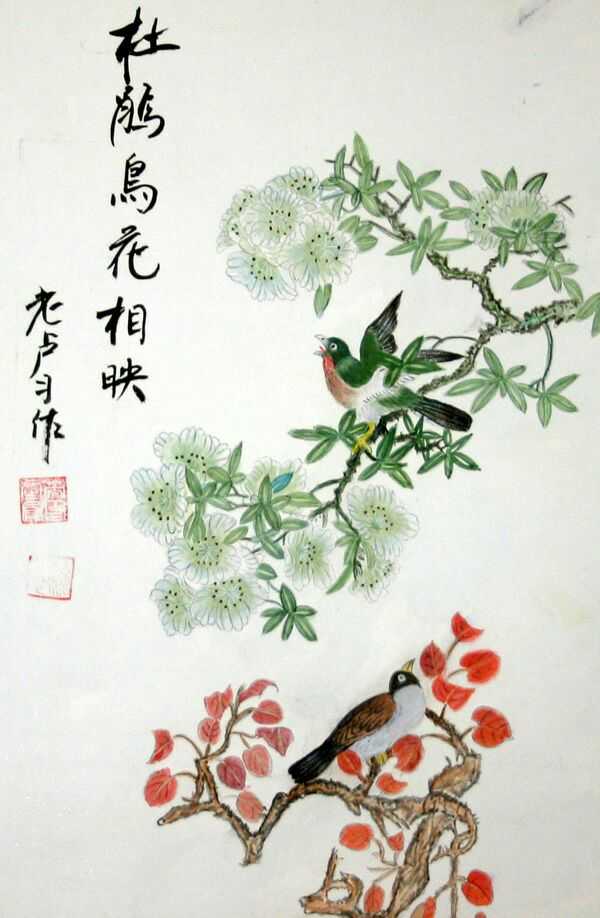 杜鹃鸟花相映
老卢习作